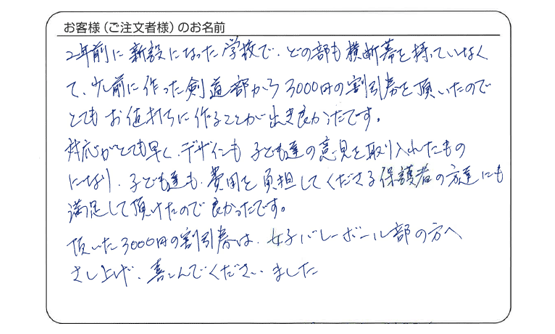 お客様（ご注文者様）のお名前
2年前に新設になった学校で、どの部も横断幕を持っていなく
て、少し前に作った剣道部から3000円の割引券を頂いたので
とてもお値打ちに作ることが出き良かったです。
対応がとても早く、デザインも子ども達の意見を取り入れたもの
になり、子ども達も、費用を負担してくださる保護者の方達にも
満足して頂けたので良かったです。
頂いた3000円の割引券は、女子バレーボール部の方へ
さし上げ、喜んでくださいました